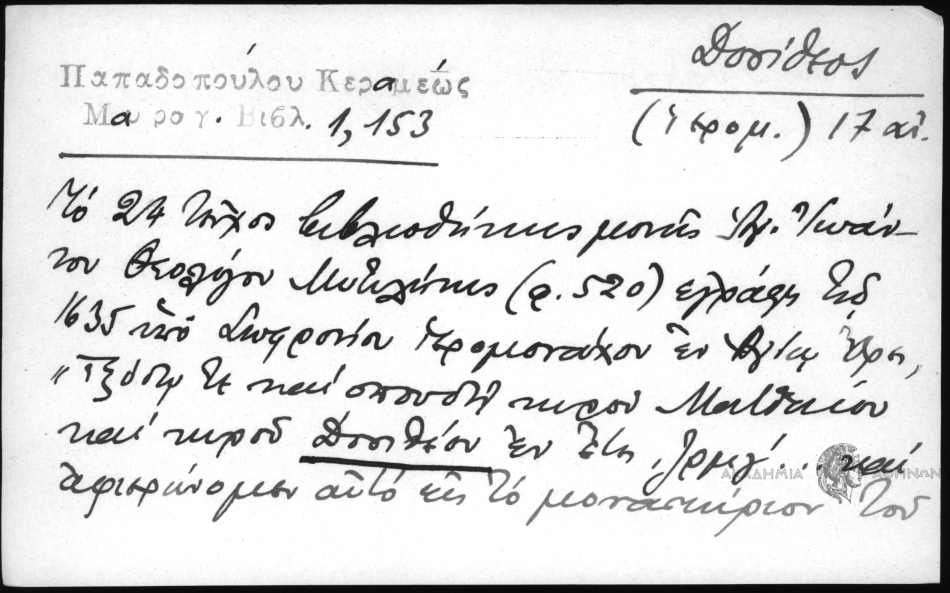 Δοσίθεος
Παπαδοπούλου Κεραμέως
Μαυρογ. Βιβλ. 1, 153
(ἱερομ.) 17 αἰ.
Τὸ 24 τεῦχος βιβλιοθήκης μονῆς Ἁγ. Ἰωάν-
νου Θεολόγου Μυτιλήνης (φ. 520) ἐγράφη τῷ
1635 ὑπὸ Σωφρονίου ἱερομονάχου ἐν Ἁγίῳ Ὄρει,
"Ἐξόδῳ τε καὶ σπουδῇ κυροῦ Ματθαίου
καὶ κυροῦ Δοσιθέου ἐν ἔτει ͵ζρμγ´... καὶ
ἀφιερώνομεν αὐτὸ εἰς τὸ μοναστήριον τοῦ
ΑΚΑΔΗΜΙΑ ΑΘΗΝΩΝ